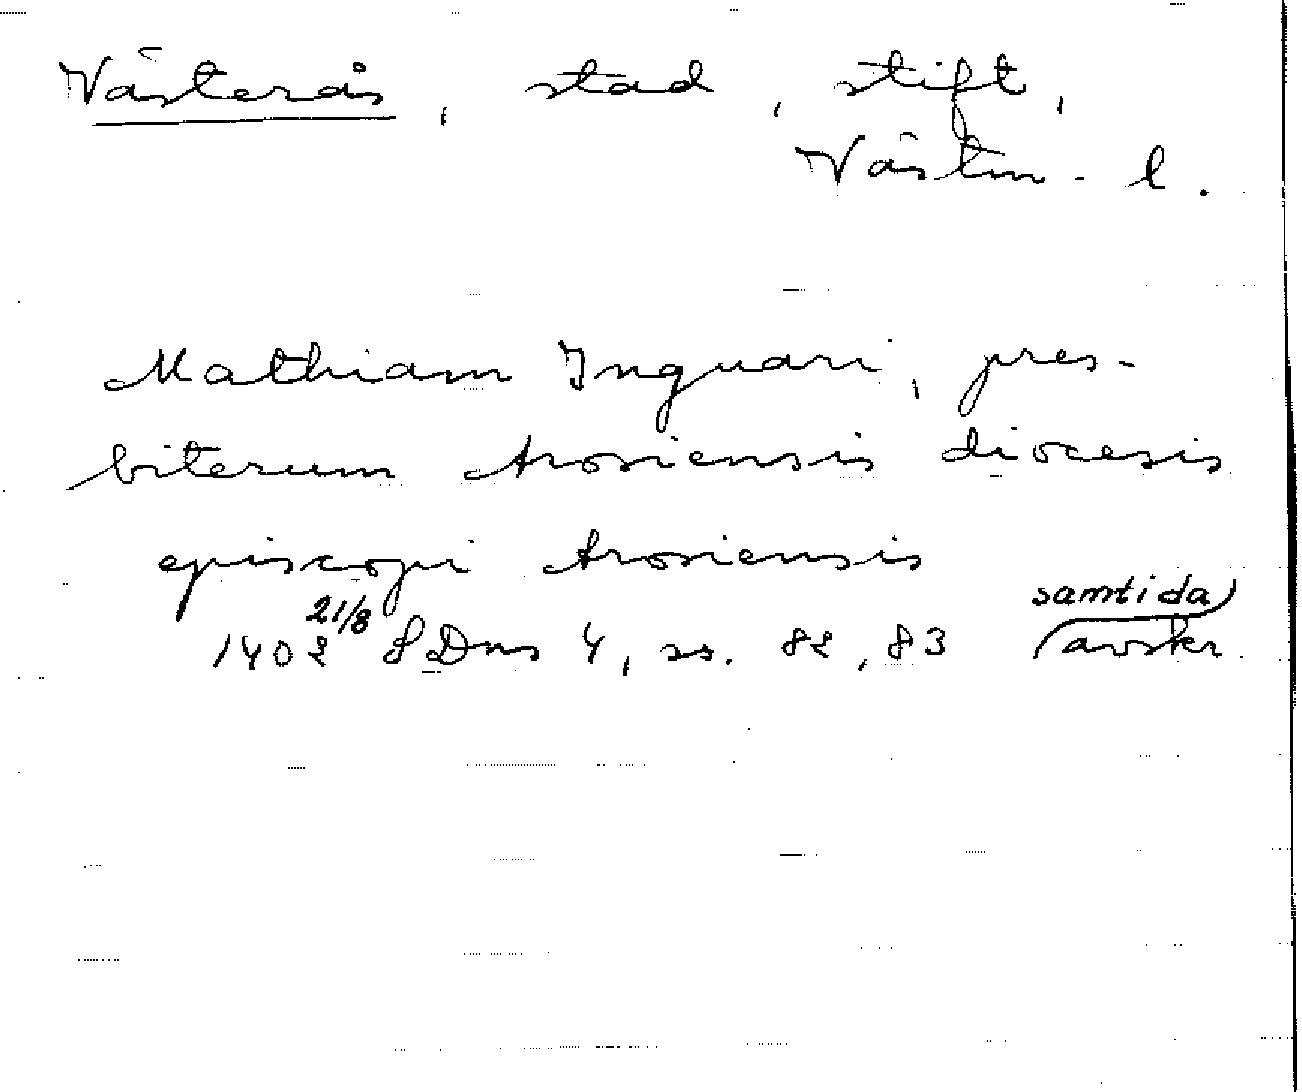 Västerås, stad, stift,
Västm. l.
Mathiam Inguari, pres-
biterum Arosiensis diocesis
episcopi Arosiensis
1402 21/8 SDns 4, ss. 82, 83 samtida
avskr.